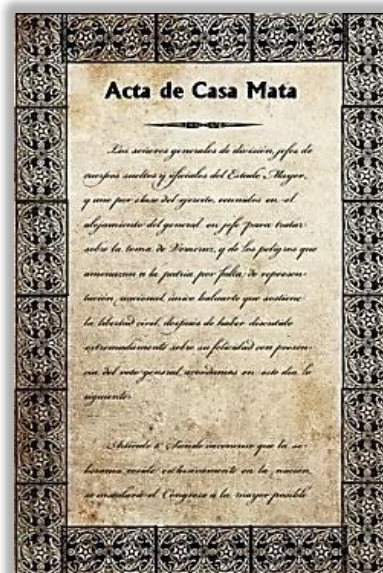 Acta de Casa Mata
Los señores generales de división, jefes de
cuerpos sueltos y oficiales del Estado Mayor,
y uno por clase del ejército, reunidos en el
alojamiento del general en jefe para tratar
sobre la toma de Veracruz, y de los peligros que
amenazan a la patria por falta de represen-
tación nacional, único baluarte que sostiene
la libertad civil, después de haber discutido
extremadamente sobre su felicidad con presen-
cia del voto general, acordamos en este día lo
siguiente:
Artículo 1º Siendo inconcuso que la so-
beranía reside exclusivamente en la nación,
se instalará el Congreso a la mayor posible